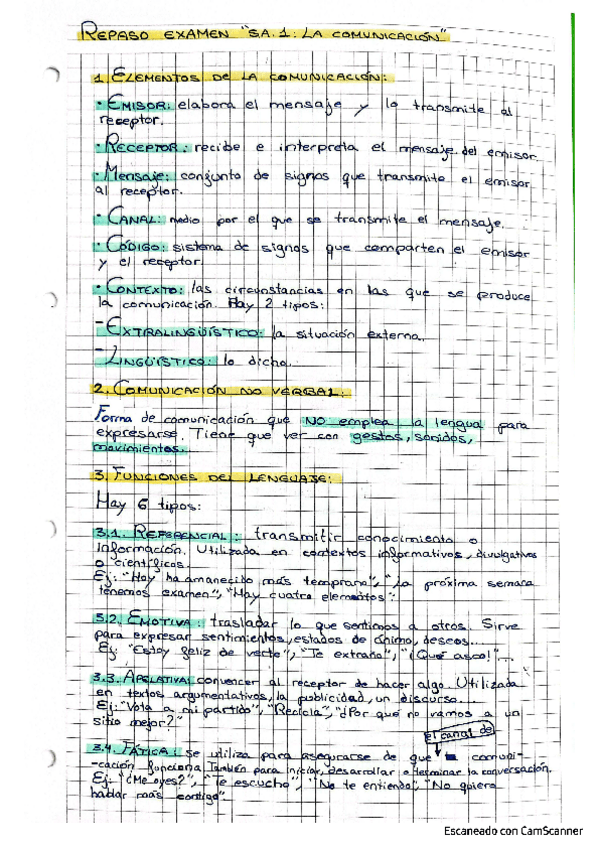 REPASO EXAMEN "SA.1: LA COMUNICACIÓN"
1. ELEMENTOS DE LA COMUNICACIÓN:
· EMISOR: elabora el mensaje y lo transmite al
receptor.
· RECEPTOR: recibe e interpreta el mensaje del emisor
· Mensaje: conjunto de signos que transmite el emisor
al receptor.
· CANAL: medio por el que se transmite el mensaje.
· CÓDIGO: sistema de signos que comparten el emisor
y el receptor.
· CONTEXTO: las circunstancias en las que se produce
la comunicación. Hay 2 tipos:
- EXTRALINGÜÍSTICO: la situación externa.
- LINGÜÍSTICO: lo dicho.
2. COMUNICACIÓN NO VERBAL:
Forma de comunicación que NO emplea la lengua para
expresarse. Tiene que ver con gestos, sonidos,
movimientos.
3. FUNCIONES DEL LENGUAJE:
Hay 6 tipos:
3.1. REFERENCIAL: transmitir conocimiento o
información. Utilizada en contextos informativos, divulgativos
o científicos.
Ej: "Hoy ha amanecido más temprano", "La próxima semana
tenemos examen", "Hay cuatro elementos".
3.2. EMOTIVA: trasladar lo que sentimos a otros. Sirve
para expresar sentimientos, estados de ánimo, deseos...
Ej: "Estoy feliz de verte", "Te extraño", "¡Qué asco!"...
3.3. APELATIVA: convencer al receptor de hacer algo. Utilizada
en textos argumentativos, la publicidad, un discurso...
Ej: "Vota a mi partido", "Recicla", "¿Por qué no vamos a un
sitio mejor?"
el canal de
3.4. FÁTICA: se utiliza para asegurarse de que la comuni-
-cación funciona. También para iniciar, desarrollar o terminar la conversación.
Ej: "¿Me oyes?", "Te escucho", "No te entiendo", "No quiero
hablar más contigo".
Escaneado con CamScanner